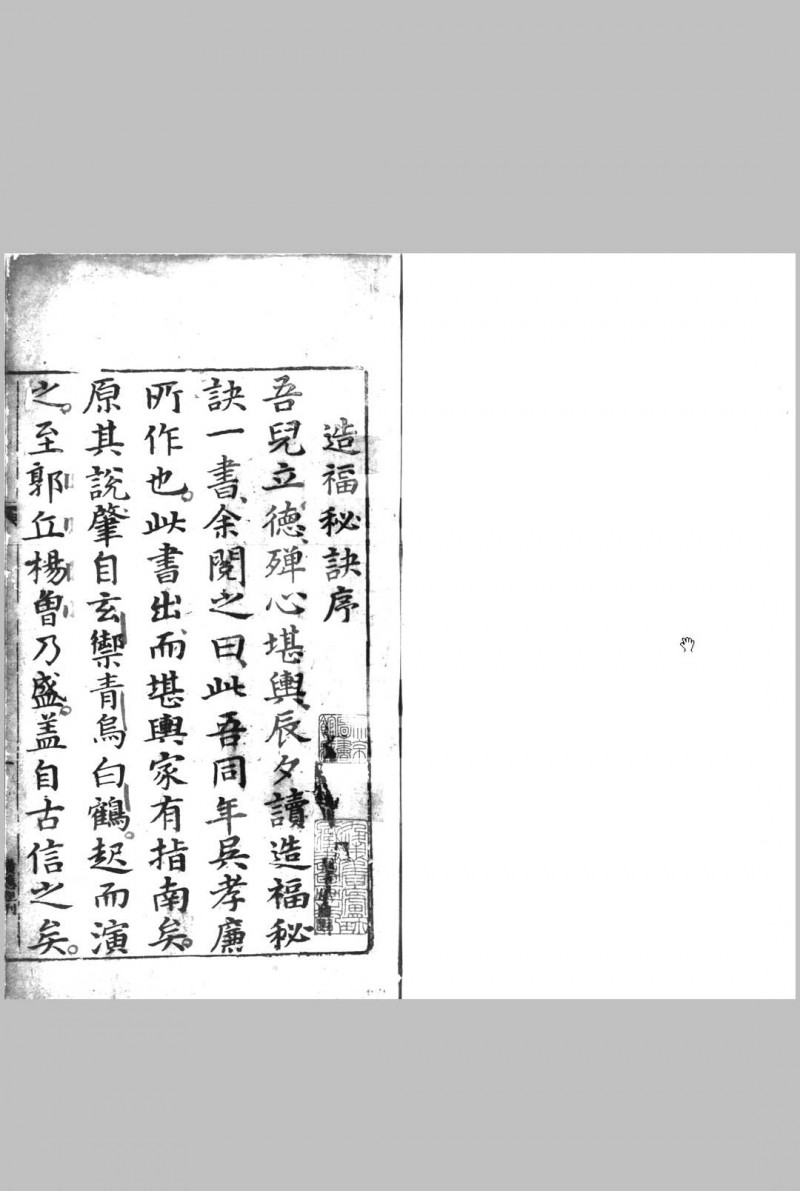 造福秘訣序
吾兒立德殫心堪輿辰夕讀造福秘
訣一書余閱之曰此吾同年吳孝廉
所作也。此書出而堪輿家有指南矣。
原其說肇自玄禦青烏白鶴。起而演
之。至郭丘楊曾乃盛。盖自古信之矣。